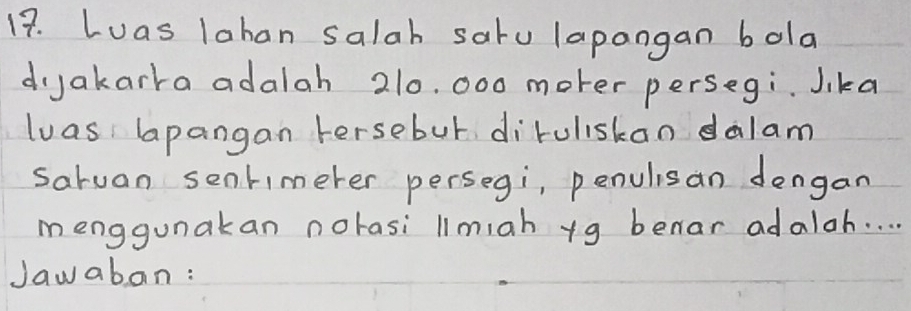 17. Luas lahan salah satu lapangan bola
dijakarta adalah 210.000 meter persegi. Jika
luas lapangan tersebut dituliskan dalam
satuan sentimeter persegi, penulisan dengan
menggunakan notasi ilmiah yg benar adalah....
Jawaban :